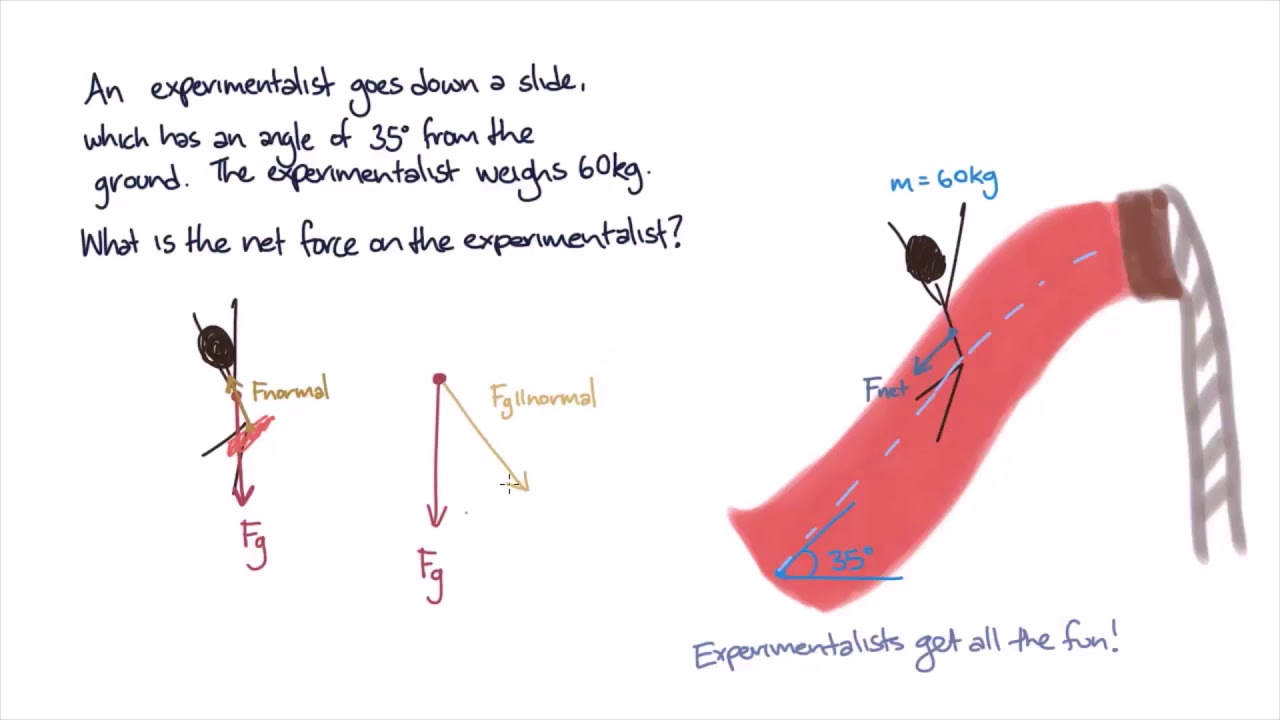 An experimentalist goes down a slide,
which has an angle of 35° from the
ground. The experimentalist weighs 60kg.
What is the net force on the experimentalist?
m = 60kg
Fnormal
Fg||normal
Fnet
Fg
Fg
35°
Experimentalists get all the fun!